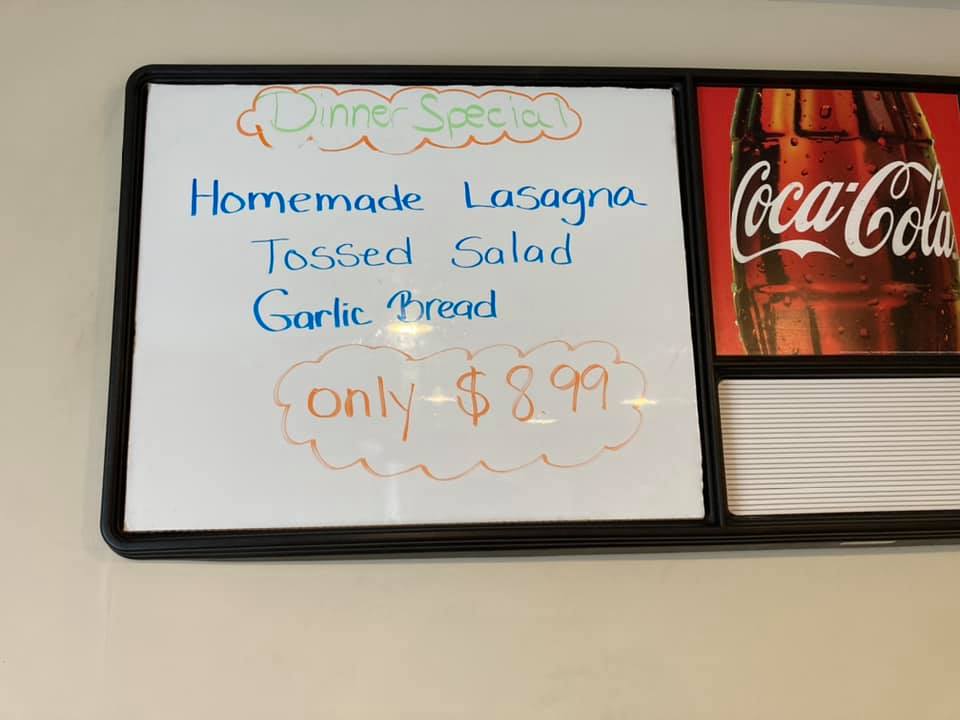 Dinner Special
Homemade Lasagna
Tossed Salad
Garlic Bread
only $8.99
Coca-Cola